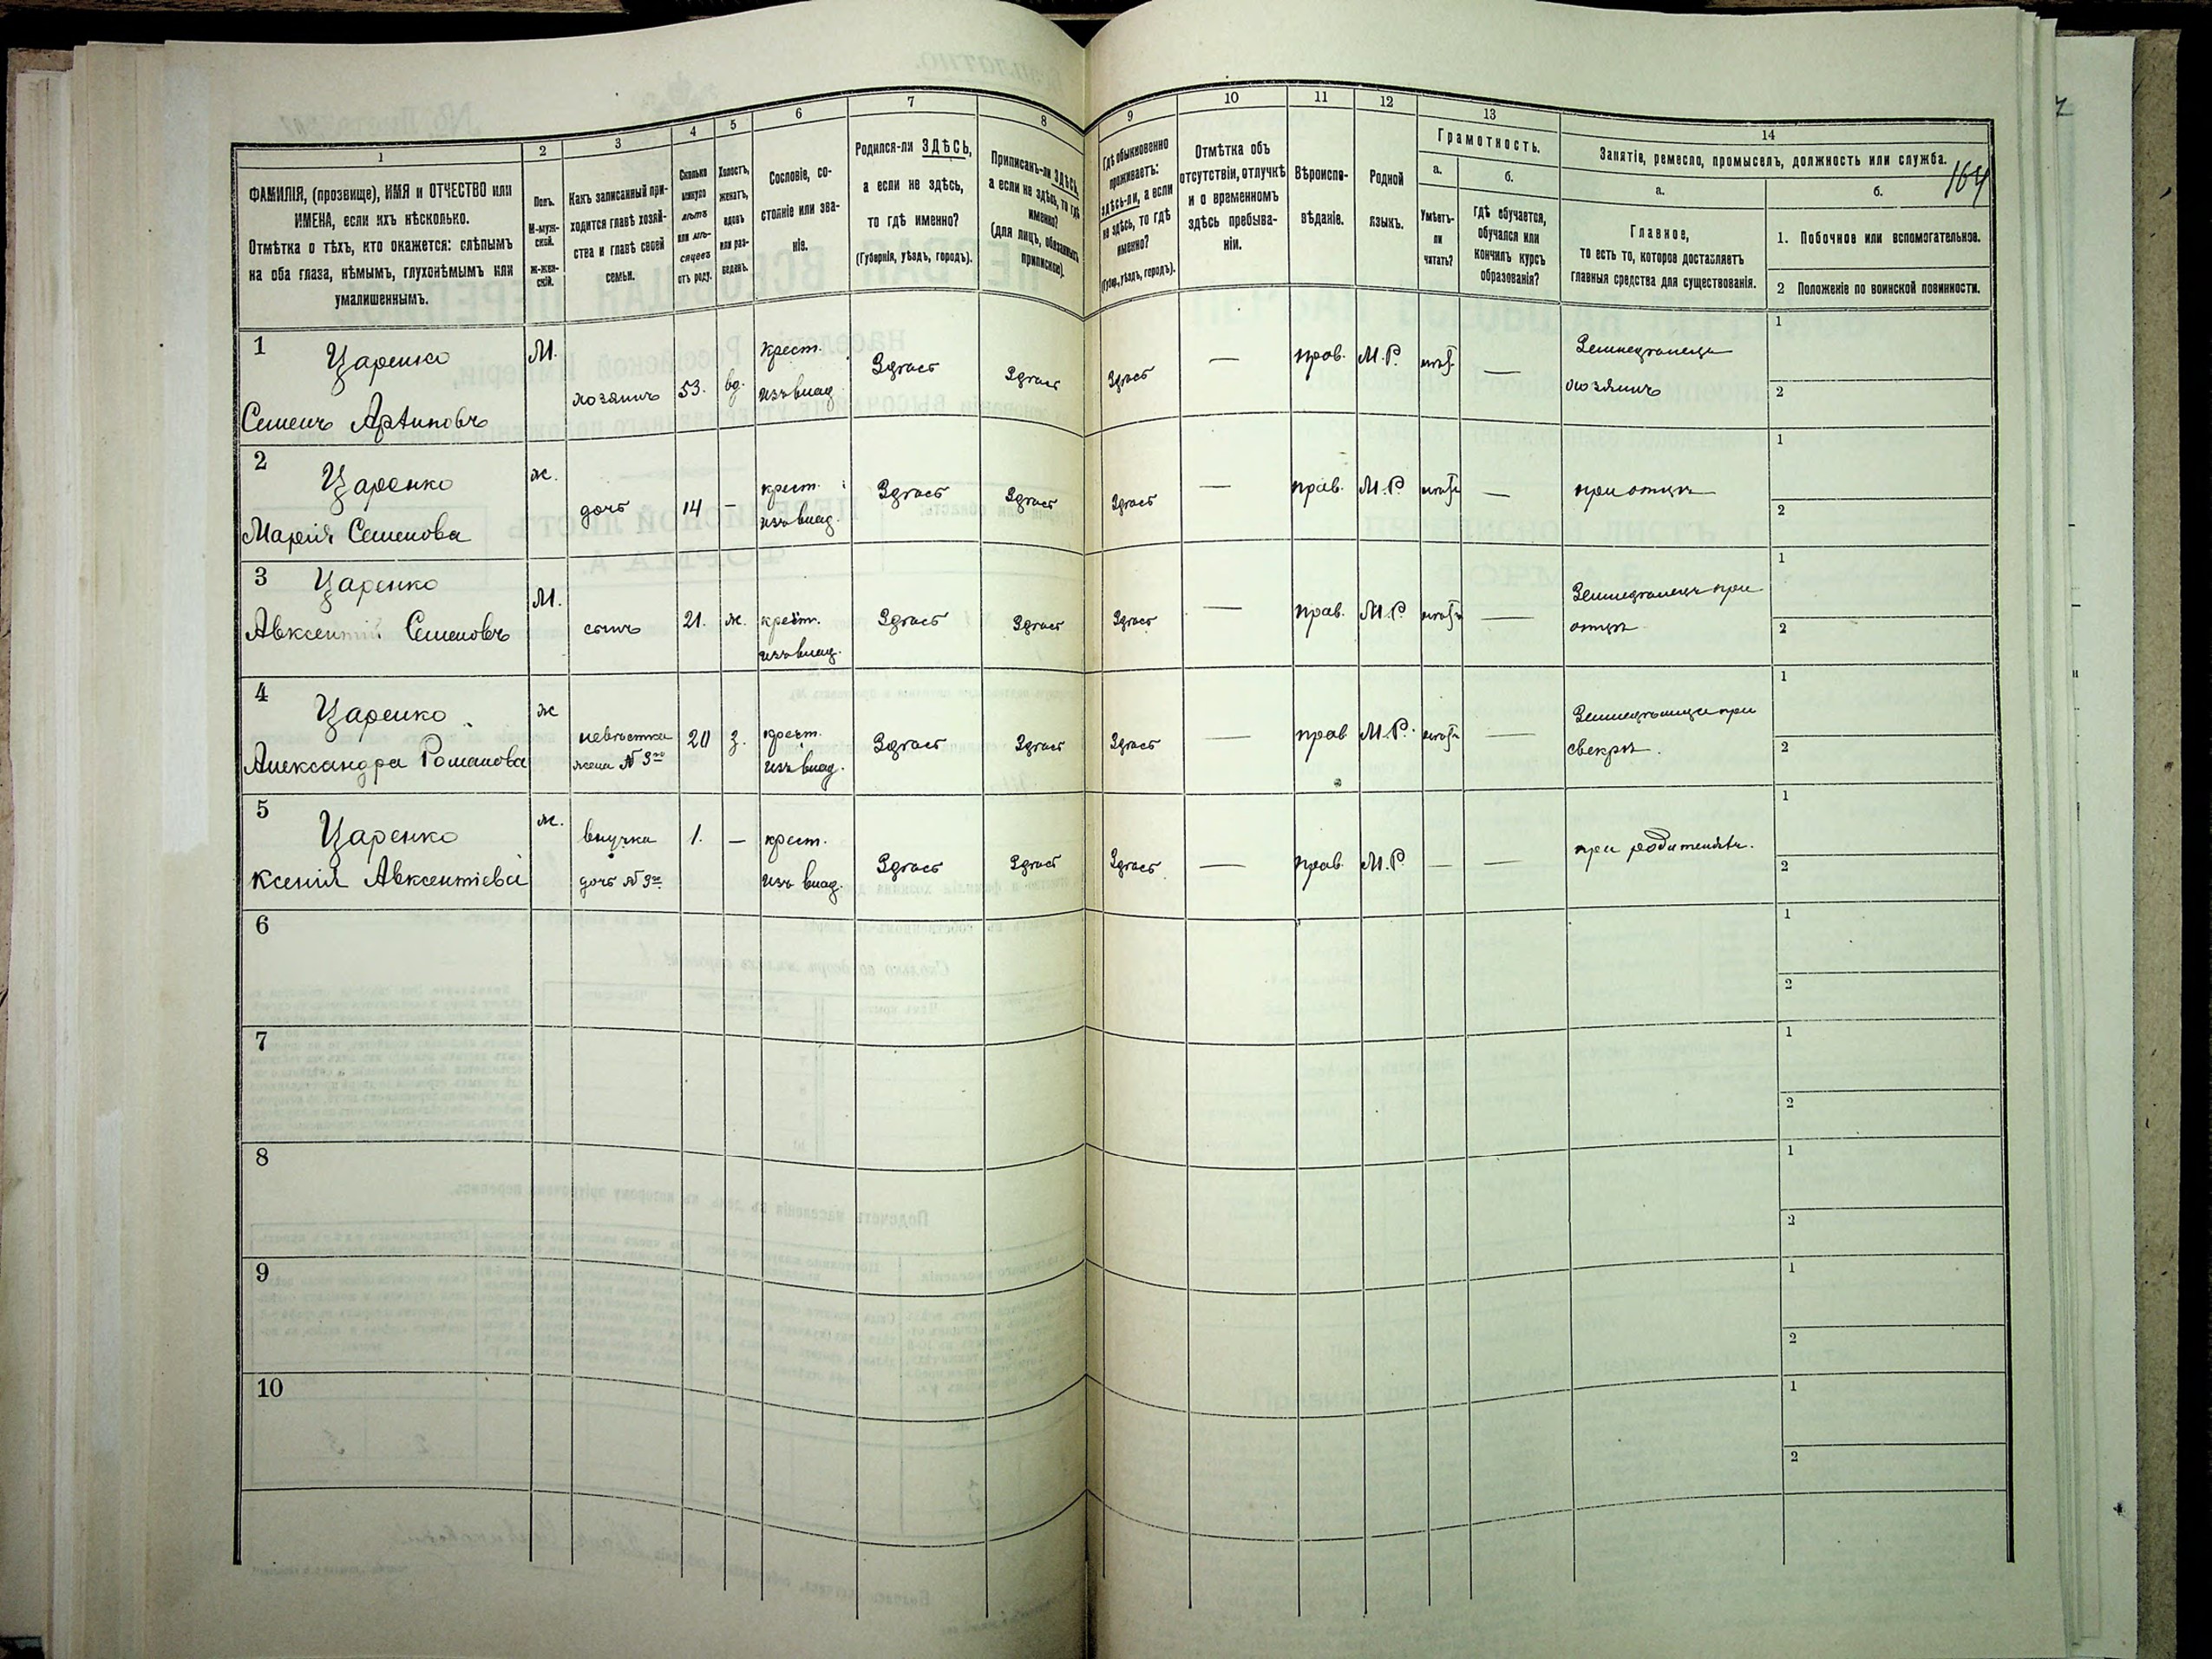 164
1
2
3
4
5
6
7
8
9
10
11
12
13
14
ФАМИЛІЯ, (прозвище), ИМЯ и ОТЧЕСТВО или
ИМЕНА, если ихъ нѣсколько.
Отмѣтка о тѣхъ, кто окажется: слѣпымъ
на оба глаза, нѣмымъ, глухонѣмымъ или
умалишеннымъ.
Полъ.
М-муж-
ской.
Ж-жен-
скій.
Какъ записанный при-
ходится главѣ хозяй-
ства и главѣ своей
семьи.
Сколько
минуло
лѣтъ
или мѣ-
сяцевъ
отъ роду.
Холостъ,
женатъ,
вдовъ
или раз-
веденъ.
Сословіе, со-
стояніе или зва-
ніе.
Родился-ли ЗДѢСЬ,
а если не здѣсь,
то гдѣ именно?
(Губернія, уѣздъ, городъ).
Приписанъ-ли ЗДѢСЬ,
а если не здѣсь, то гдѣ
именно?
(для лицъ, обязанныхъ
припиской).
Гдѣ обыкновенно
проживаетъ:
здѣсь-ли, а если
не здѣсь, то гдѣ
именно?
(Губер., уѣздъ, городъ).
Отмѣтка объ
отсутствіи, отлучкѣ
и о временномъ
здѣсь пребыва-
ніи.
Вѣроиспо-
вѣданіе.
Родной
языкъ.
Грамотность.
а.
Умѣетъ-
ли
читать?
б.
гдѣ обучается,
обучался или
кончилъ курсъ
образованія?
Занятіе, ремесло, промыселъ, должность или служба.
а.
Главное,
то есть то, которое доставляетъ
главныя средства для существованія.
б.
1. Побочное или вспомогательное.
2 Положеніе по воинской повинности.
1 Царенко М. хозяинъ 53. вд. крест. Здѣсь Здѣсь Здѣсь — прав. М.Р. нѣтъ — Земледѣлецъ 1
Семенъ изъ влад. хозяинъ 2
2 Царенко ж. дочь 14 — крест. Здѣсь Здѣсь Здѣсь — прав. М.Р. нѣтъ — при отцѣ 1
Марія Семенова изъ влад. 2
3 Царенко М. сынъ 21. ж. крест. Здѣсь Здѣсь Здѣсь — прав. М.Р. нѣтъ — Земледѣлецъ при 1
Авксентій Семеновъ изъ влад. отцѣ 2
4 Царенко ж невѣстка 20 з. крест. Здѣсь Здѣсь Здѣсь — прав М.Р. нѣтъ — при 1
Александра Романова жена № 3го изъ влад. свекрѣ. 2
5 Царенко ж. внучка 1. — крест. Здѣсь Здѣсь Здѣсь — прав. М.Р. — — при родителяхъ. 1
Ксенія Авксентіева дочь № 3го изъ влад. 2
6 1
2
7 1
2
8 1
2
9 1
2
10 1
2